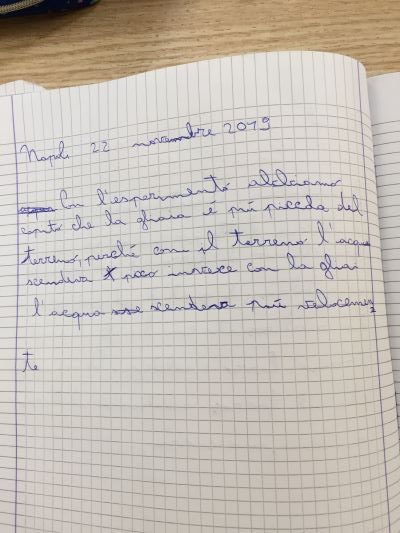 Napoli 22 novembre 2019
Con l'esperimento abbiamo
capito che la ghiaia é piú piccola del
terreno, perché con il terreno l'acqua
scendeva poco invece con la ghiai
l'acqua scendeva piú velocemen
te